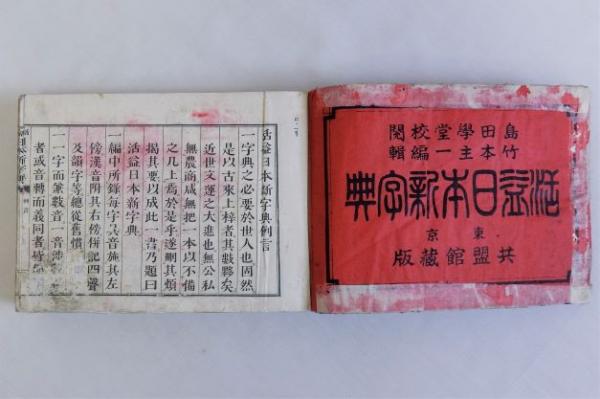 島田學堂校閱
竹本主一編輯
活益日本新字典
東京
共盟館藏版
活益日本新字典例言
一字典之必要於世人也固然
是以古來上梓者其數夥矣
近世文運之大進也無公私
無農商咸無把一本以不備
之几上焉於是乎遂刪其煩
揭其要以成此一書乃題曰
活益日本新字典
一編中所錄每字吳音施其左
傍漢音附其右傍併記四聲
及韻字等總從舊慣
一一字而兼數音一音涉
者或音轉而義同者